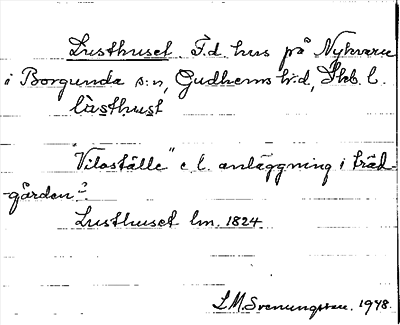 Lusthuset. F.d. hus på Nykvarn
i Borgunda s:n, Gudhems h:d, Skb. l.
lùsthust
"Viloställe" e.l. anläggning i träd-
gården?
Lusthuset lm. 1824
L.M. Svenungsson. 1948.